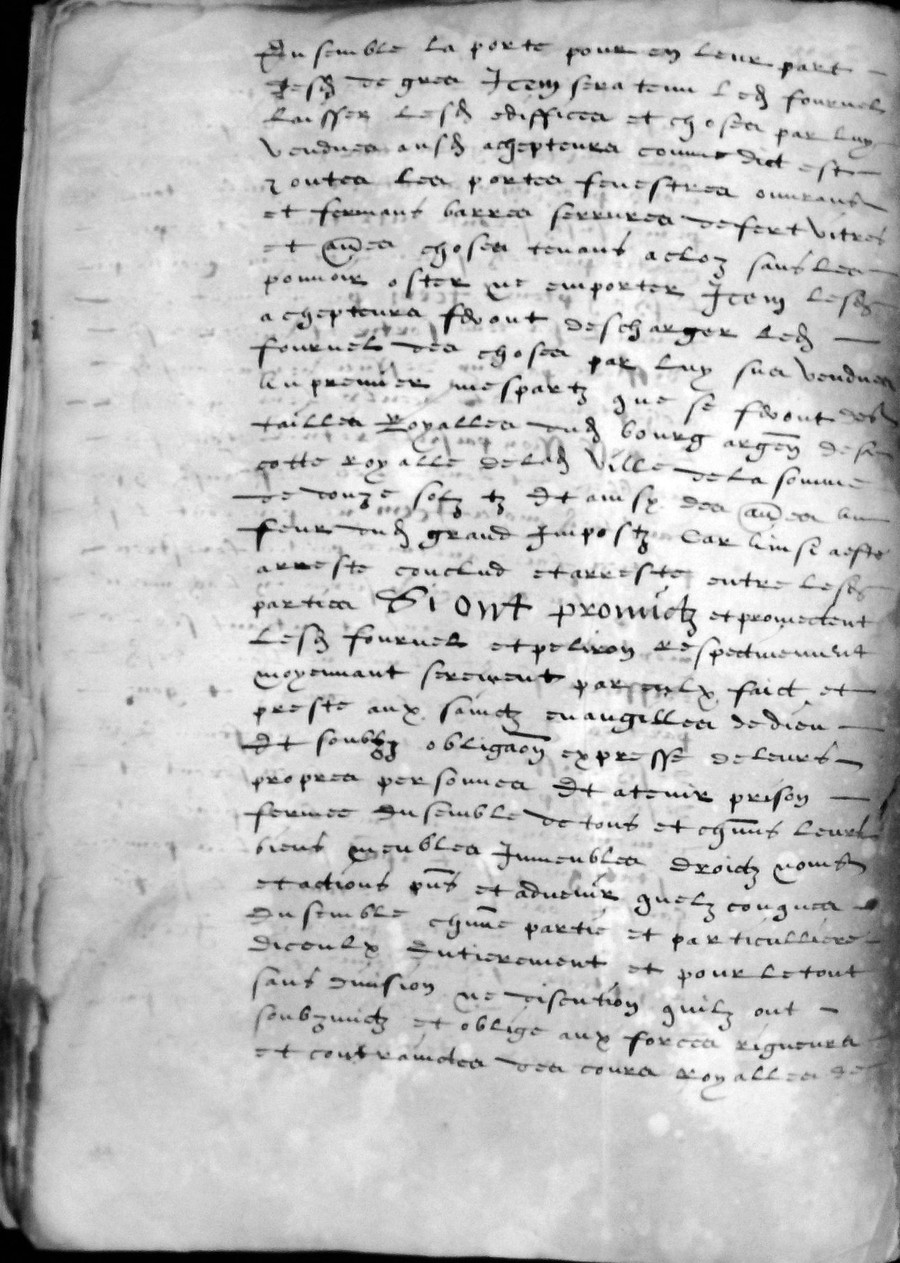 Ensemble la porte pour en leur part
desd degres Item sera tenu led fournel
laisser lesd ediffices et choses par luy
vendues ausd achepteurs comme dict est
toutes les portes fenestres ouvrans
et fermans barres serrures de fert vitres
et aues choses tenans a cloz sans les
pouvoir oster ne emporter Item lesd
achepteurs feront descharger led
fournel des choses par luy sus vendues
au premier mespartz que se feront des
tailles Royalles dud bourg argen de sa
cotte royalle de lad ville de la somme
de douze solz tz Et ainsy des aues au
feur dud grand Impostz Car ainsi a esté
arreste conclud et arresté entre lesd
parties Si ont promictz et promectent
lesd fournel et peliron respectivement
moyennant serement par eulx faict et
preste aux sainctz evangilles de dieu
Et soubz obligaon expresse de leurs
propres personnes Et a tenir prison
fermee Ensemble de tous et chuns leurs
biens meubles Immeubles droictz noms
et actions pns et advenir quelz conques
Ensemble chune partie et particulliere
diceulx Entierement et pour le tout
sans division ne discution quilz ont
soubzmictz et oblige aux forces rigueurs
et contrainctes des cours royalles de